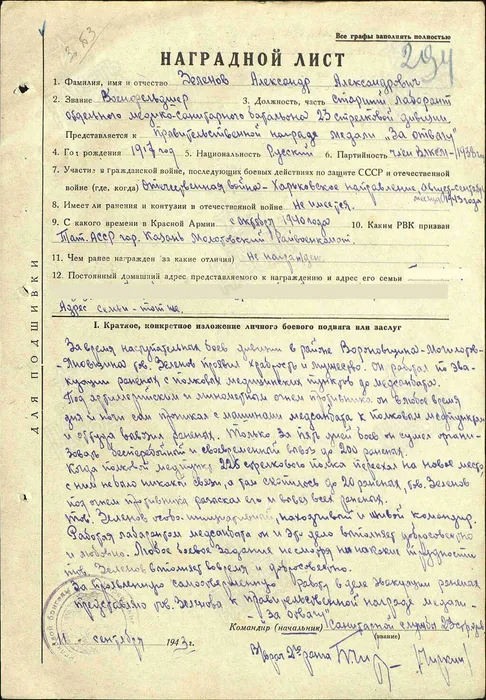 Все графы заполнять полностью
363
294
НАГРАДНОЙ ЛИСТ
1. Фамилия, имя и отчество Зеленов Александр Александрович
2. Звание Военфельдшер 3. Должность, часть старший лаборант
отдельного медико-санитарного батальона 23 стрелковой дивизии
Представляется к правительственной награде медали „За отвагу“
4. Год рождения 1917 год 5. Национальность Русский 6. Партийность член ВЛКСМ 1938
7. Участие в гражданской войне, последующих боевых действиях по защите СССР и отечественной
войне (где, когда) отечественная война - Харьковское направление Август-сентябрь
месяц 1943 года
8. Имеет ли ранения и контузии в отечественной войне Не имеется.
9. С какого времени в Красной Армии с октября 1940 года 10. Каким РВК призван
Тат. АССР гор. Казань Молотовский Райвоенкомат.
11. Чем ранее награжден (за какие отличия) Не награжден
12. Постоянный домашний адрес представляемого к награждению и адрес его семьи
Адрес семьи - тот же.
ДЛЯ ПОДШИВКИ
I. Краткое, конкретное изложение личного боевого подвига или заслуг
За время наступательных боев дивизии в районе
тов. Зеленов проявил храбрость и мужество. Он работал по эва-
куации раненых с полковых медицинских пунктов до медсанбата.
Под артиллерийским и минометным огнем противника он в любое время
дня и ночи сам проникал с машинами медсанбата к полковым медпунктам
и оттуда вывозил раненых. Только за пять дней боев он сумел органи-
зовать бесперебойный и своевременный вывоз до 200 раненых.
Когда полковой медпункт 225 стрелкового полка переехал на новое место,
с ним не было никакой связи, а там скопилось до 20 раненых, тов. Зеленов
под огнем противника разыскал его и вывез всех раненых.
Тов. Зеленов особо инициативный, находчивый и живой командир.
Работая лаборантом медсанбата он и это дело выполняет добросовестно
и любовно. Любое боевое задание не смотря ни на какие трудности
тов. Зеленов выполняет вовремя и добросовестно.
За проявленную самоотверженную работу в деле эвакуации раненых
представляю тов. Зеленова к правительственной награде медали-
„За отвагу“
Командир (начальник) Санитарной службы 23 стр. див
(звание)
„11“ сентября 1943 г.
В/врач 2го ранга